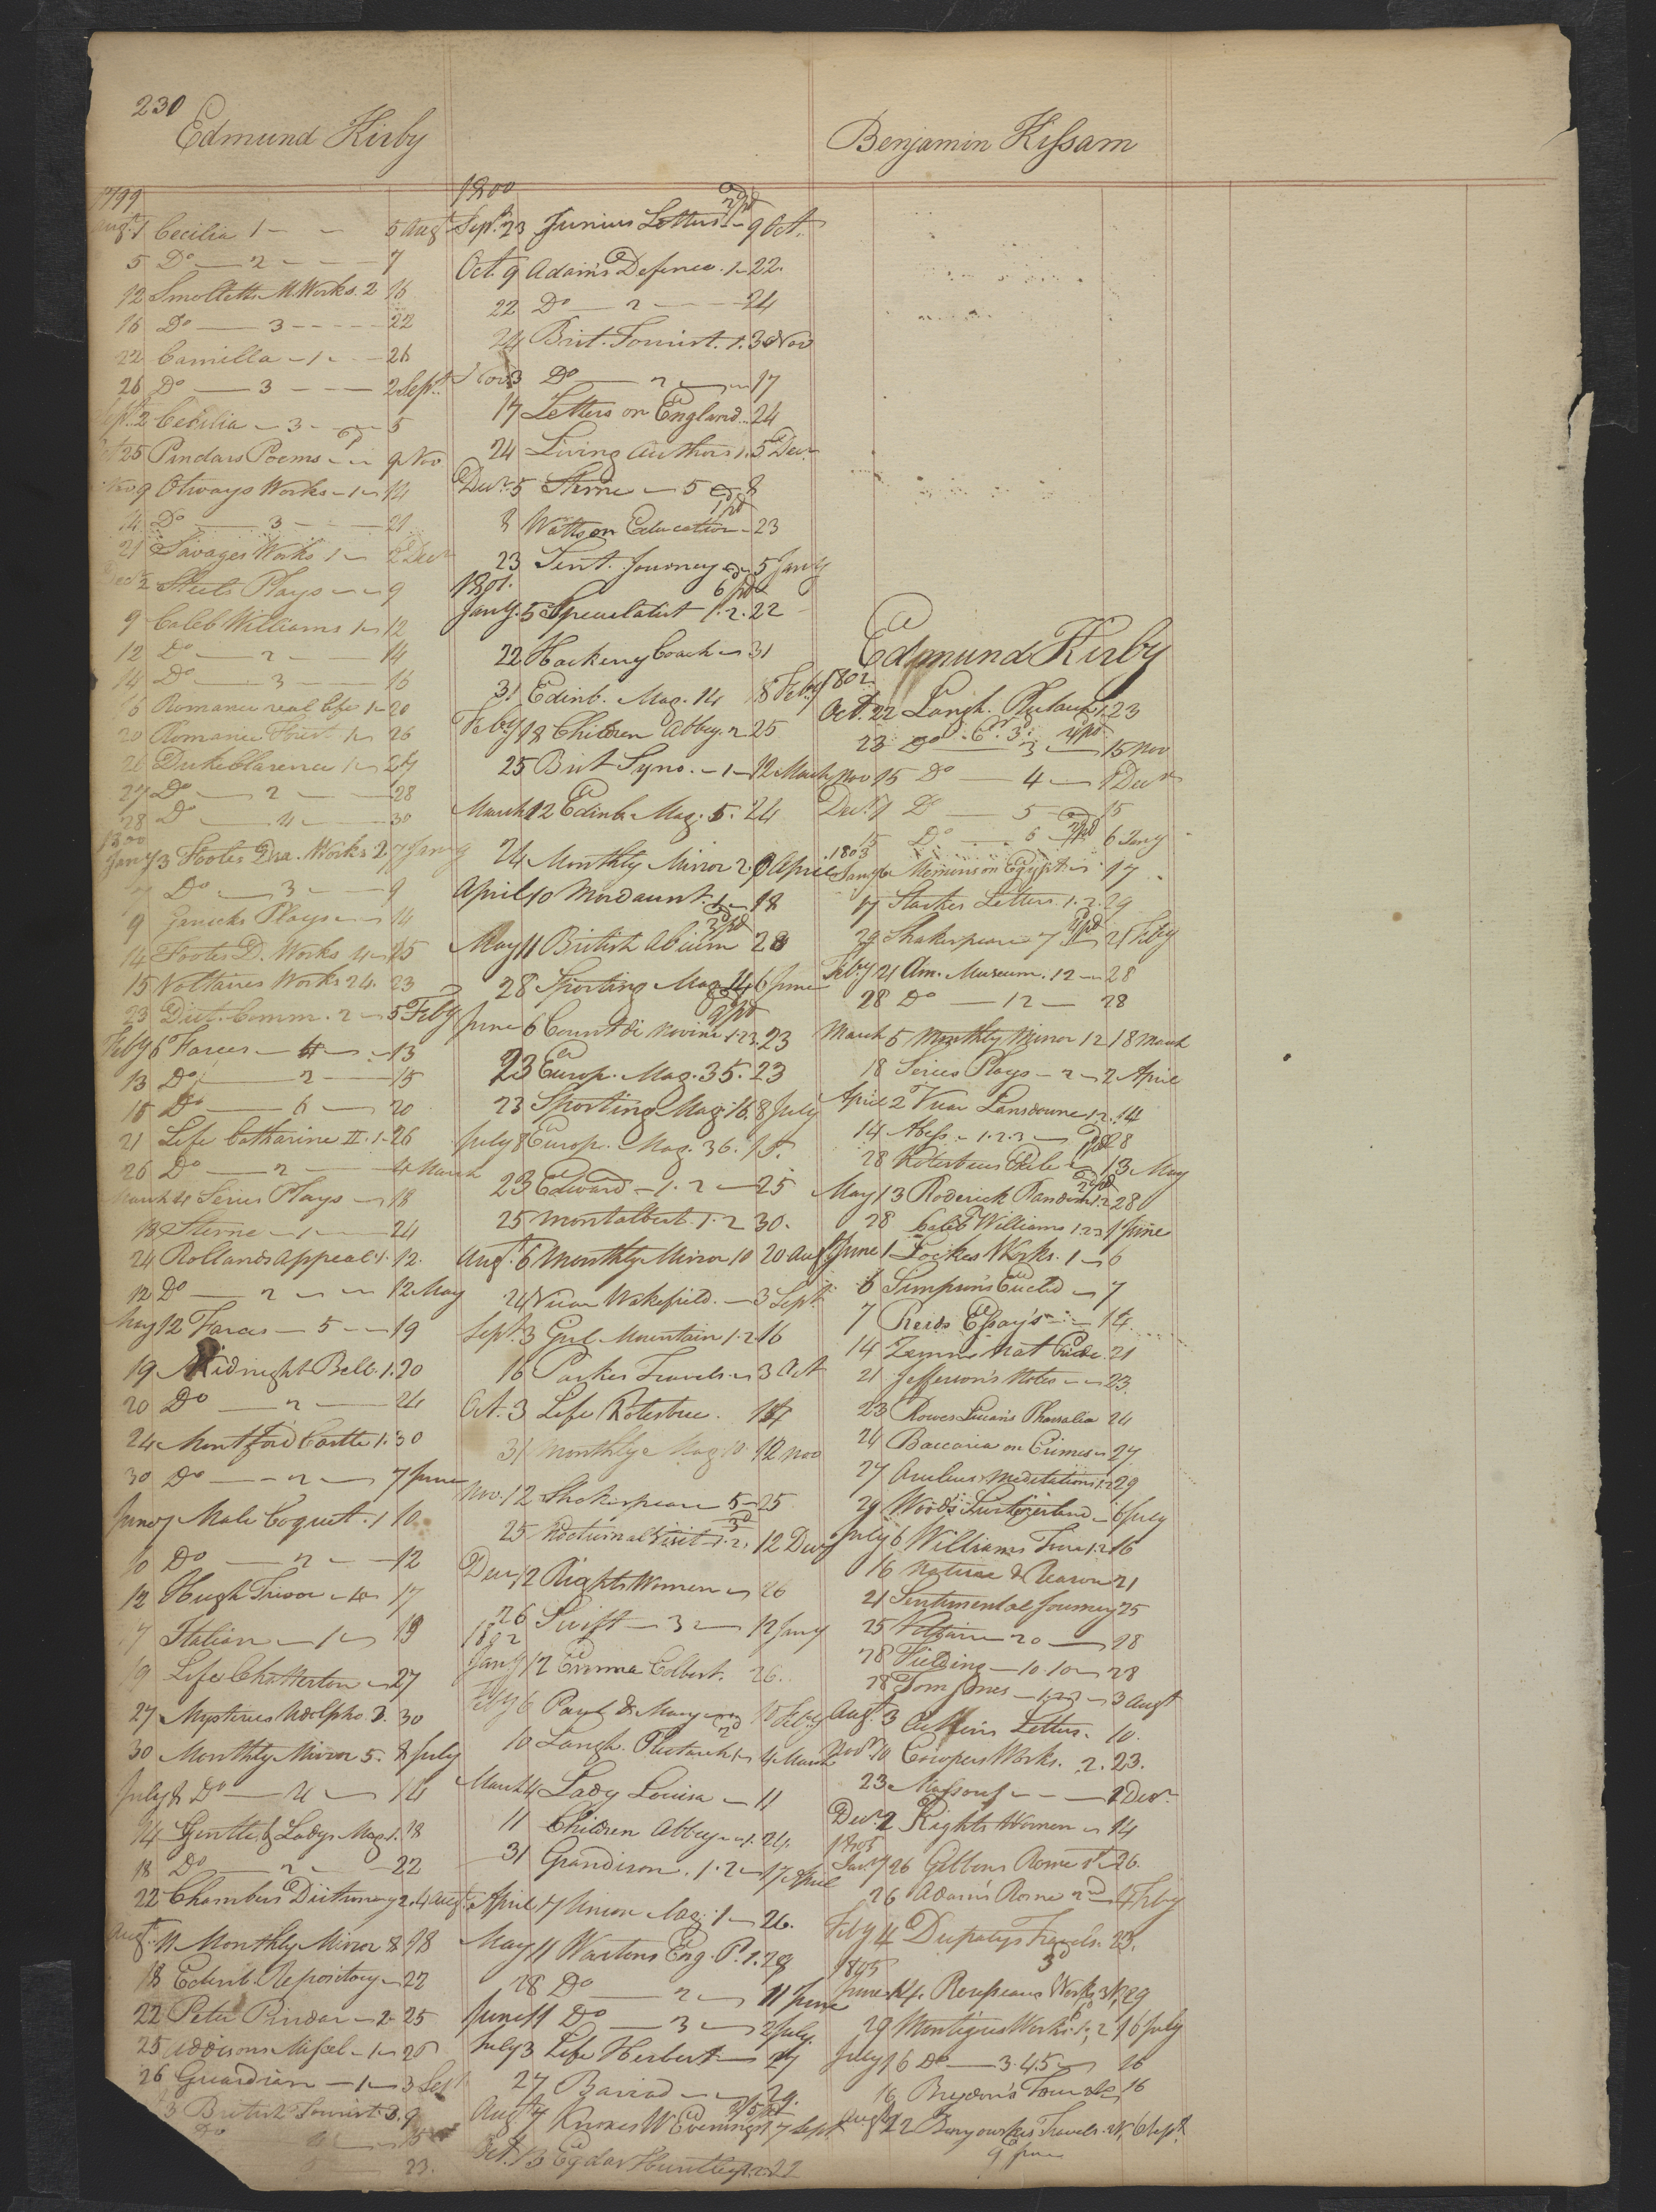 230
Edmund Kirby
1799
Augt. 1 Cecilia 1 5 Augt
5 Do 2 7
12 Smolletts M. Works. 2 16
16 Do 3 22
22 Camilla 1 26
26 Do 3 2 Sept.
Sept. 2 Cecilia 3 5
25 Pindars Poems 9 Nov
Nov 9 Otways Works 1 14
14 Do 3 21
21 Savages Works 1 2 Decr
Decr 2 Plays 9
9 Caleb Williams 1 12
12 Do 2 14
14 Do 3 16
16 Romance real life 1 20
20 Romance 1 26
26 Duke Clarence 1 27
27 Do 2 28
28 Do 4 30
1800
Jany 3 Footes Dra. Works 2 7 Jany
7 Do 3 9
9 Garricks Plays 14
14 Footes D. Works 4 15
15 Voltaires Works 24. 23
23 Dict. Comm. 2 5 Feby
Feby 6 Farces 4 13
13 Do 2 15
15 Do 6 20
21 Life Catharine II. 1 26
26 Do 2 4 March
March 4 Series Plays 18
18 Sterne 1 24
24 Rollands Appeal 1. 12.
12 Do 2 12 May
May 12 Farces 5 19
19 Midnight Bell. 1. 20
20 Do 2 24
24 Montford Castle 1. 30
30 Do 2 7 June
June 7 Male Coquet. 1 10
10 Do 2 12
12 Hugh Trevor 4 17
17 Italian 1 19
19 Life Chatterton 27
27 Mysteries Udolpho. 3. 30
30 Monthly Mirror 5. 8 July
July 8 Do 4 14
14 Gentle. & Ladys Mag. 1. 18
18 Do 2 22
22 Chambers Dictionary 2. 4 Augt.
Augt. 11 Monthly Mirror 8 18
18 Edinb. Repository 22
22 Peter Pindar 2 25
25 Addisons Miscel. 1 26
26 Guardian 1 3 Sept
3 British Tourist. 3. 9
Do 4 15
5 23.
1800
Sept. 23 Junius Letters 1 9 Oct.
2 pd
Oct. 9 Adams Defence. 1 22.
22 Do 2 24
24 Brit. Tourist. 1. 3 Nov
Nov. 3 Do 2 17
17 Letters on England 24
24 Living Authors 1. 5 Decr
Decr. 5 Sterne 5 8
1 pd
8 Watts on Education 23
23 Sent. Journey 5 Jany
1801. 6 pd
Jany. 5 Speculatist 1. 2. 22
22 Hackney Coach 31
31 Edinb. Mag. 14 18 Feby
Feby 18 Children Abbey. 2 25
25 Brit Syno. 1 12 March
March 12 Edinb. Mag. 5. 24
24 Monthly Mirror 2. 9 April
April 10 Mordaunt. 1 18
2 pd
May 11 British Album 28
28 Sporting Mag. 14 6 June
2 pd
June 6 Count di Novini 1.2.3. 23
23 Europ. Mag. 35. 23
23 Sporting Mag. 16. 8 July
July 8 Europ. Mag. 36.
23 Edward 1. 2 25
25 Montalbert. 1. 2 30.
Augt. 6 Monthly Mirror 10 20 Augt
24 Vicar Wakefield. 3 Sept.
Sept. 3 Gril. Mountain 1. 2 16
16 Parkes Travels 3 Oct
Oct. 3 Life Kotzebue. 14
31 Monthly Mag 10 12 Nov
Nov. 12 Shakespeare 5 25
25 Nocturnal Visit 1. 2. 12 Decr
Decr 12 Rights Women 26
26 Swift 3 12 Jany
1802
Jany 12 Emma Colbert. 26.
Feby 6 Paul & Mary 10 Feby
10 Langh. Plutarch 1 4 March
March 4 Lady Louisa 11
11 Children Abbey 1. 24.
31 Grandison. 1. 2 17 April
April 17 Union Mag. 1 26.
May 11 Wartons Eng. P. 1. 28
28 Do 2 11 June
June 11 Do 3 2 July.
July 3 Life Herbert 27
27 29.
Augt 7 Knoxes W Evenings 17 Sept
Oct. 13 Egdar Huntley 1.2. 22
Benjamin Kissam
Edmund Kirby
1802
Oct. 22 Langh. Plutarch 1. 23
23 Do 3 15 Nov
Nov 15 Do 4 1 Decr
Decr. 1 Do 5 15
15 Do 6 6 Jany
1803
Jany 6 Memirs on Egypt. 17
17 Starkes Letters. 1. 2. 29
29 Shakespeare 7 21 Feby
Feby 21 Am. Museum. 12 28
28 Do 12 28
March 5 Monthly Mirror 12 18 March
18 Series Plays 2 2 April
April 2 Vicar Lansdowne 1. 2. 14
14 Abess 1. 2. 3 28
28 Kotzebues Exile 13 May
May 13 Roderick Random 1. 2 28
28 Caleb Williams 1.2.3 1 June
June 1 Lockes Works. 1 6
6 Simpson's Euclid 7
7 Reids Essay's 14
14 Zimm. Nat. Pride. 21
21 Jefferson's Notes 23.
23 Rowes Lucan's Pharsalia 24
24 Baccaria on Crimes 27
27 Aurleus Meditations 1.2 29
29 Wood's Switzerland 6 July
July 6 Williams Tour 1.2 16
16 Nature & Reason 21
21 Sentimental Journey 25
25 Voltaire 20 28
28 Fielding 10. 10 28
28 Tom Jones 1.2.3 3 Augt
Augt. 3 Aitkins Letters. 10.
Novr. 10 Cowpers Works. 2. 23.
23 Massouf 2 Decr.
Decr. 2 Rights Women 14
1805
Jany 26 Gibbons Rome 1st 26.
26 Adam's Rome 2nd 4 Feby
Feby 4 Depatys Travels. 23.
1805
June 14. Rousseaus Works 3d, 29
29 Montignes Works. 1, 2 16 July
July 16 Do 3. 4. 5 16
16 Brydon's Tour 16
Augt 22 Benyouskis Travels. 6 Sept.